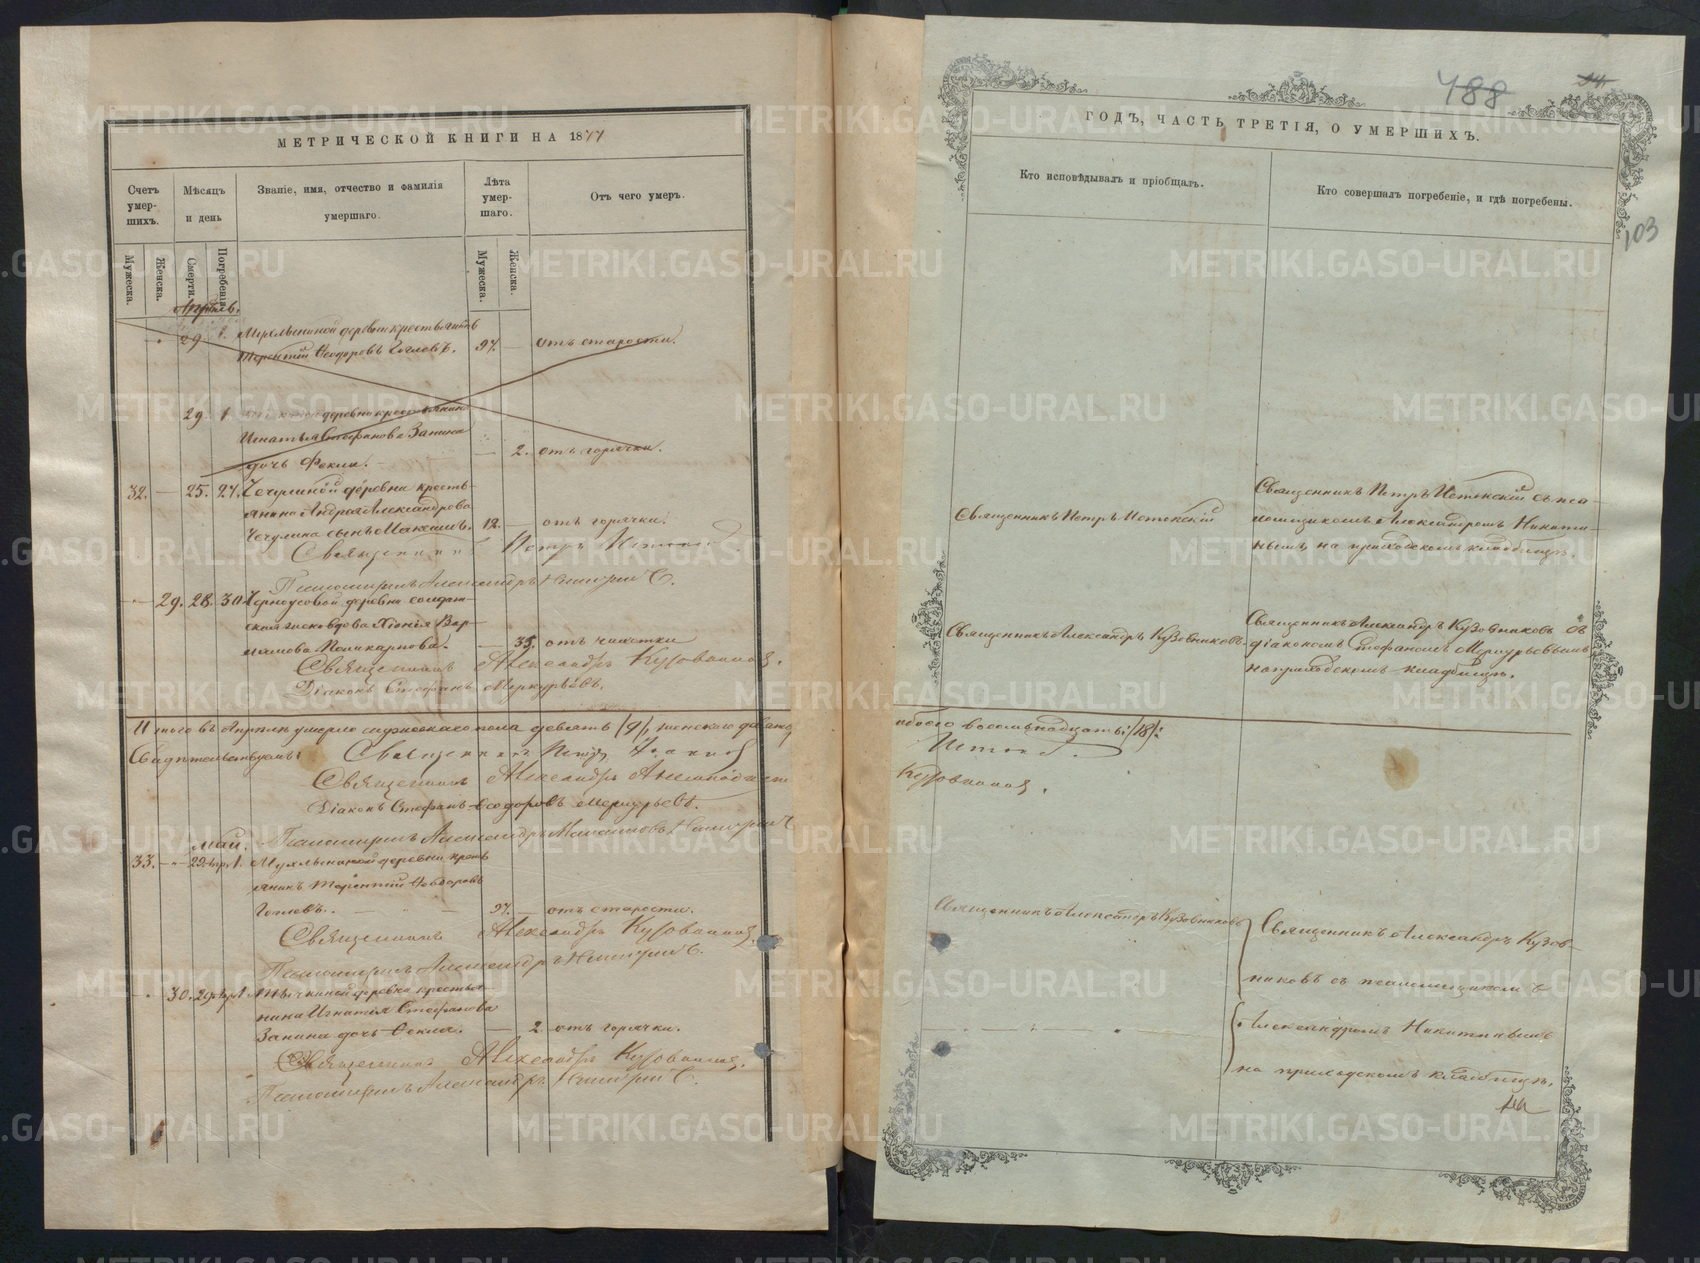 МЕТРИЧЕСКОЙ КНИГИ НА 1877
Счетъ умер-шихъ.
Мѣсяцъ и день
Званіе, имя, отчество и фамилія умершаго.
Лѣта умер-шаго.
Отъ чего умеръ.
Мужеска.
Женска.
Смерти.
Погребенія.
Мужеска.
Женска.
Апрѣль.
29 1. деревни крестьянинъ
Терентій Ѳеодоровъ 97. отъ старости.
29. 1. деревни крестьянина
Игнатія Стефанова Занина
дочь Фекла. 2. отъ горячки.
32. 25. 27. Чечулиной деревни кресть-
янина Андрея Александрова
Чечулина сынъ Максимъ. 12. отъ горячки.
Священникъ Петръ
Псаломщикъ Александръ Никитинъ.
29. 28. 30. Черноусовой деревни солдат-
ская вдова Хіонія Вар-
Поликарпова. 35. отъ чахотки
Священникъ Александръ Кузовниковъ.
Діаконъ Стефанъ Меркурьевъ.
Итого въ Апрѣлѣ умерло мужескаго пола девять /9/, женскаго девять
Свидѣтельствуемъ: Священникъ Петръ
Священникъ Александръ
Діаконъ Стефанъ Ѳеодоровъ Меркурьевъ.
Май. Псаломщикъ Александръ Никитинъ
33. 29 Апр. 1. деревни крест-
янинъ Терентій Ѳеодоровъ
97. отъ старости.
Священникъ Александръ Кузовниковъ.
Псаломщикъ Александръ Никитинъ.
30. 29 Апр. 1 деревни кресть-
янина Игнатія Стефанова
Занина дочь Фекла. 2. отъ горячки.
Священникъ Александръ Кузовниковъ.
Псаломщикъ Александръ Никитинъ.
488
103
ГОДЪ, ЧАСТЬ ТРЕТІЯ, О УМЕРШИХЪ.
Кто исповѣдывалъ и пріобщалъ.
Кто совершалъ погребеніе, и гдѣ погребены.
Священникъ Петръ
Священникъ Петръ съ пса-
ломщикомъ Александромъ Никити-
нымъ, на приходскомъ кладбищѣ.
Священникъ Александръ Кузовниковъ
Священникъ Александръ Кузовниковъ съ
діакономъ Стефаномъ Меркурьевымъ
на приходскомъ кладбищѣ.
обоего восемьнадцать: /18/:
Кузовниковъ.
Священникъ Александръ Кузовниковъ
Священникъ Александръ Кузов-
никовъ съ псаломщикомъ
Александромъ Никитинымъ
на приходскомъ кладбищѣ.
METRIKI.GASO-URAL.RU